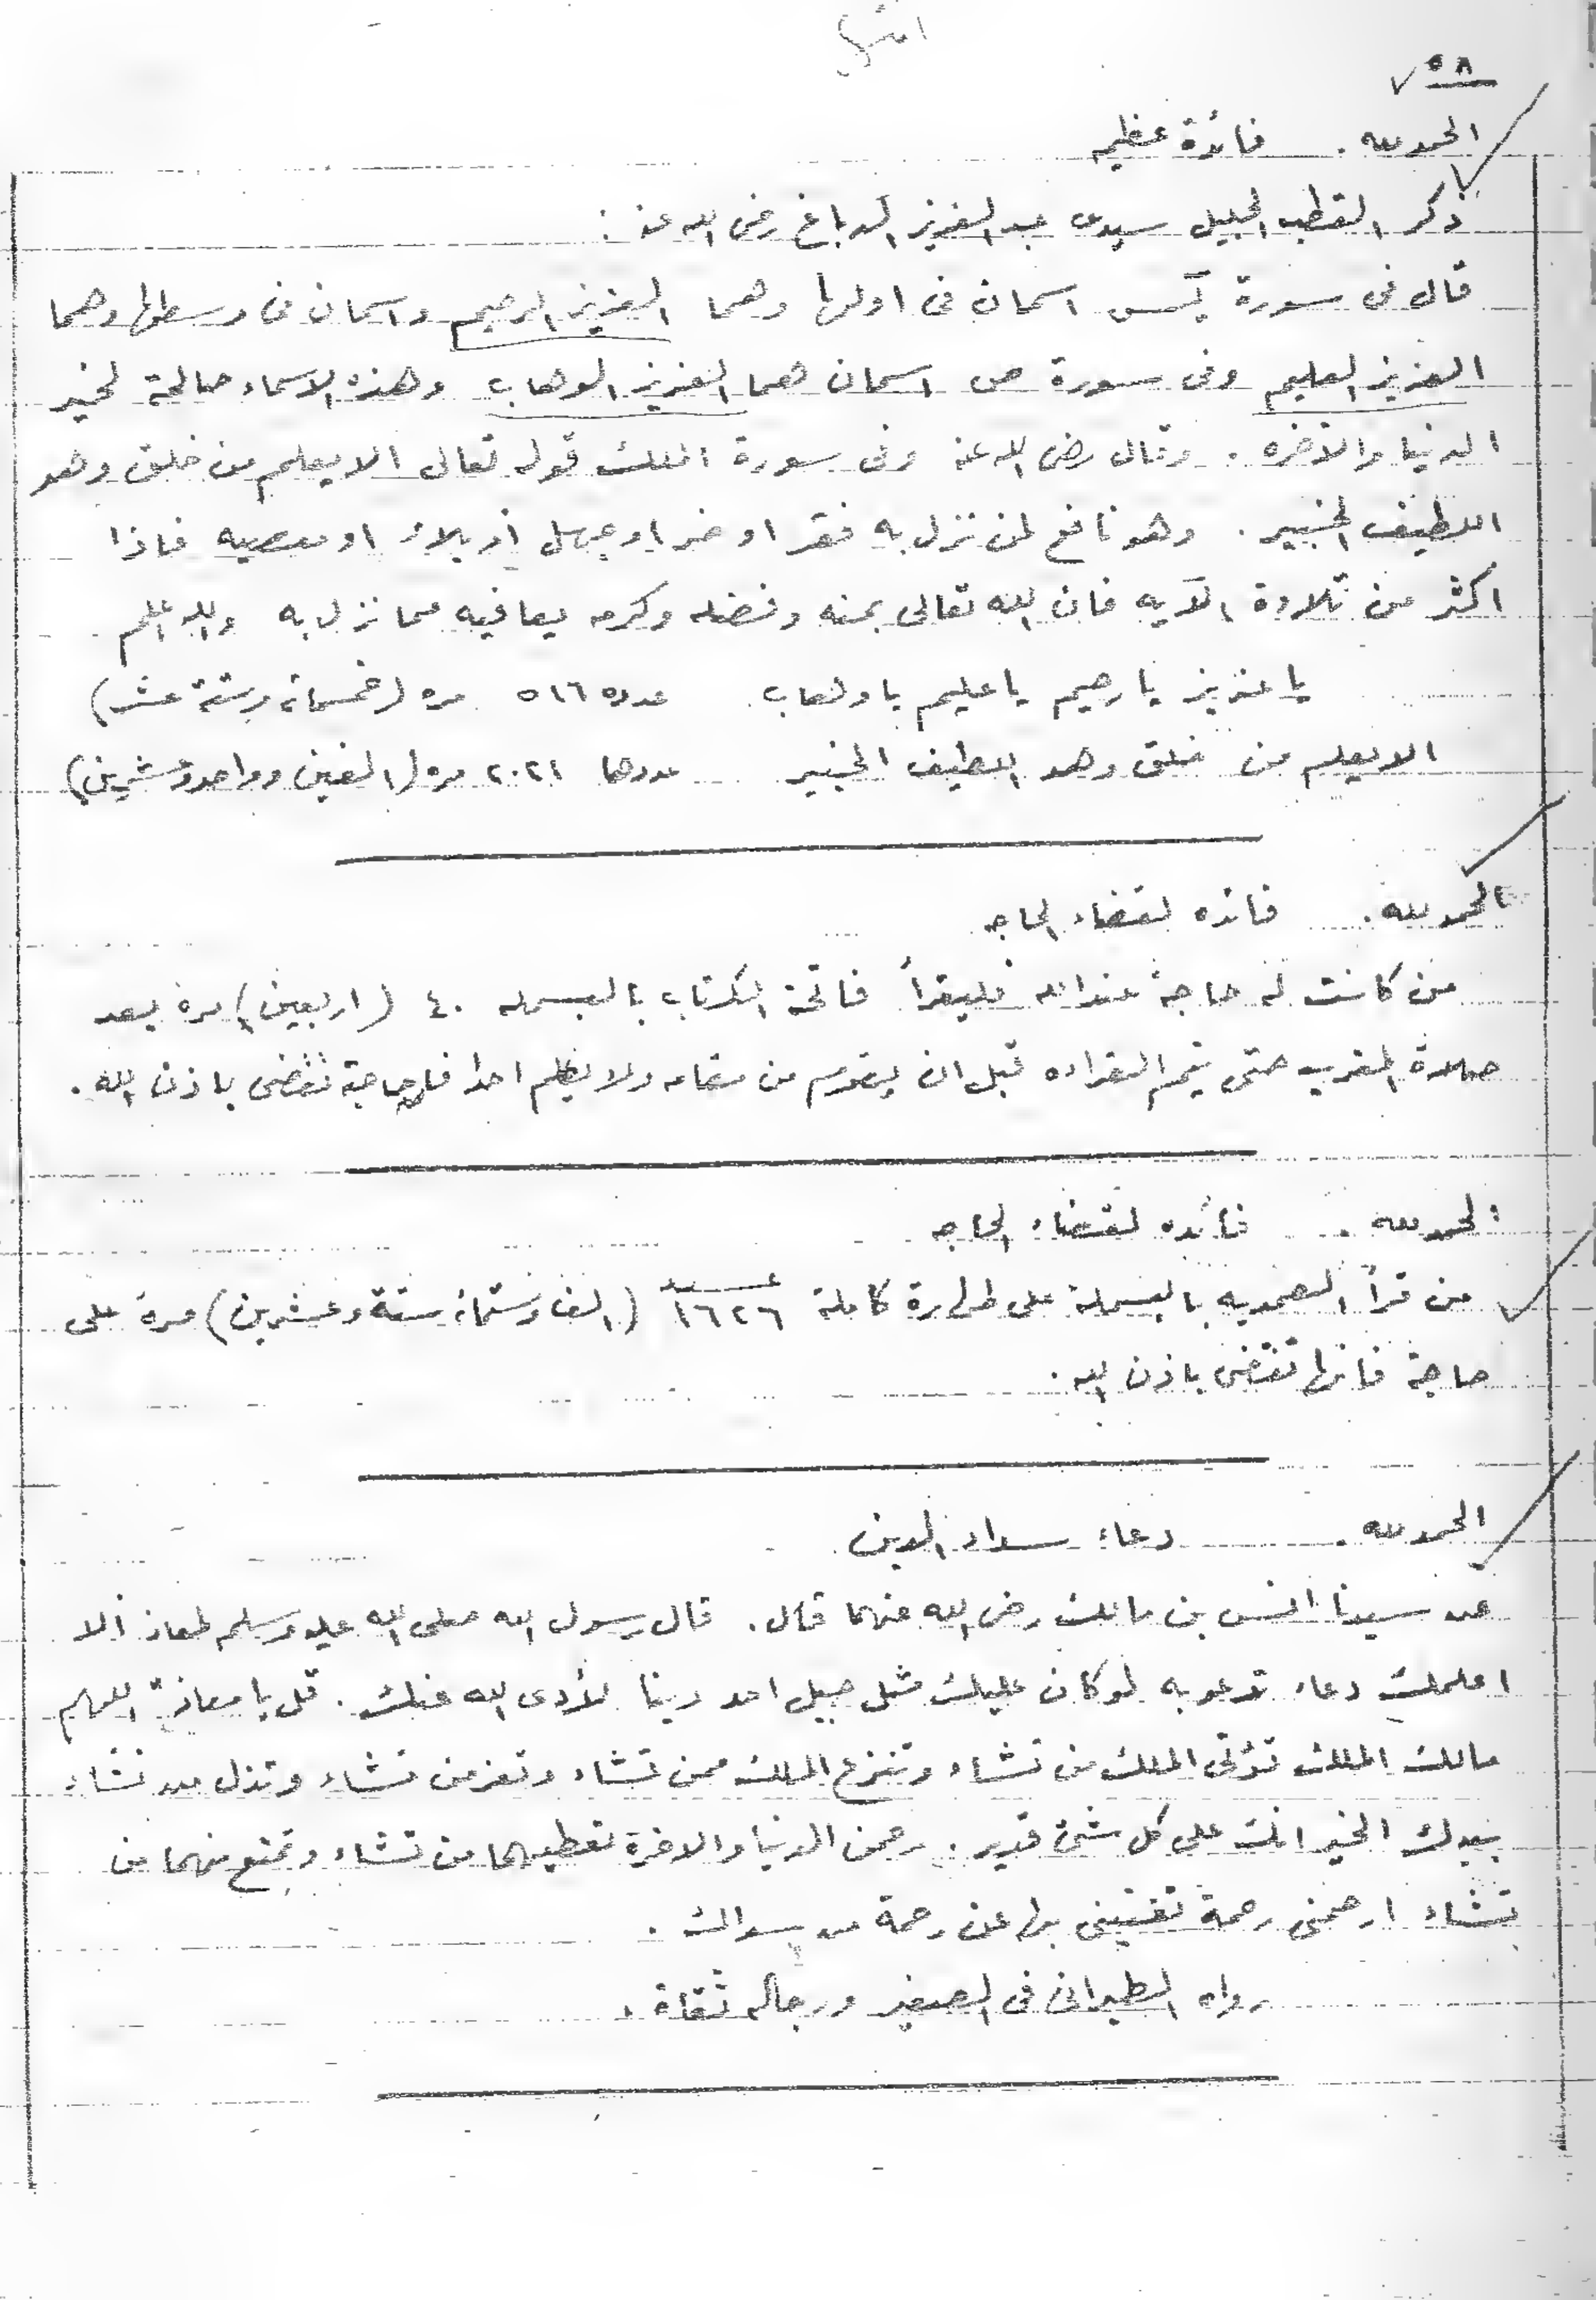 ٥٨
الحمد لله . فائدة عظيمه
ذكر القطب الجليل سيدى عبد العزيز الدباغ رضى الله عنه :
قال فى سورة يس اسمان فى اولها وهما العزيز الرحيم واسمان فى وسطها وهما
العزيز العليم وفى سورة ص اسمان هما العزيز الوهاب وهذه الاسماء صالحة لخير
الدنيا والآخره . وقال رضى الله عنه وفى سورة الملك قوله تعالى الا يعلم من خلق وهو
اللطيف الخبير . وهو نافع لمن نزل به فقر او ضر او جهل أو بلاء او معصيه فاذا
اكثر من تلاوة الآيه فان الله تعالى بمنه وفضله وكرمه يعافيه مما نزل به والله اعلم
يا عزيز يا رحيم يا عليم يا وهاب عدد ٥١٦ مره (خمسمائة وستة عشر)
الا يعلم من خلق وهو اللطيف الخبير عددها ٢٠٢١ مره (الفين وواحد وعشرين)
الحمد لله . فائده لقضاء الحاجه
من كانت له حاجة عند الله فليقرأ فاتحة الكتاب بالبسمله ٤٠ (اربعين) مرة بعد
صلاة المغرب حتى يتم القراءه قبل ان يقوم من مقامه ولا يكلم احدا فالحاجة تقضى باذن الله .
الحمد لله . فائده لقضاء الحاجه
من قرأ الصمديه بالبسملة على طهارة كاملة عدد ١٦٢٦ (الف وستمائة ستة وعشرين) مرة على
حاجة فانها تقضى باذن الله .
الحمد لله . دعاء سداد الدين
عن سيدنا انس بن مالك رضى الله عنهما قال . قال رسول الله صلى الله عليه وسلم لمعاذ ألا
اعلمك دعاء تدعو به لو كان عليك مثل جبل احد دينا لأدى الله عنك . قل يا معاذ " اللهم
مالك الملك تؤتى الملك من تشاء وتنزع الملك ممن تشاء وتعز من تشاء وتذل من تشاء
بيدك الخير انك على كل شئ قدير . رحمن الدنيا والاخرة تعطيهما من تشاء وتمنع منهما من
تشاء ارحمنى رحمة تغنينى بها عن رحمة من سواك .
رواه الطبرانى فى الصغير ورجاله ثقاة .